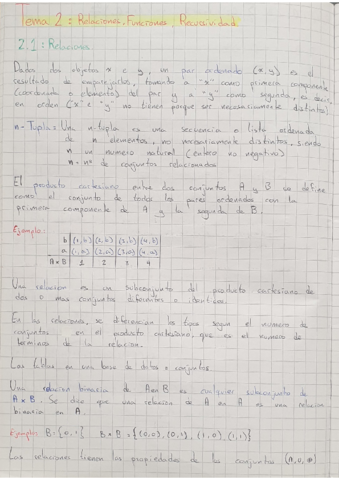 Tema 2: Relaciones, Funciones, Recursividad.
2.1: Relaciones
Dados dos objetos x e y, un par ordenado (x,y) es el
resultado de emparejarlos, tomando a "x" como primera componente
(coordenada o elemento) del par y a "y" como segunda, es decir,
en orden ("x" e "y" no tienen porque ser necesariamente distintos)
n-Tupla: Una n-tupla es una secuencia o lista ordenada
de n elementos, no necesariamente distintos, siendo
n un numero natural (entero no negativo)
n = nº de conjuntos relacionados
El producto cartesiano entre dos conjuntos A y B se define
como el conjunto de todos los pares ordenados con la
primera componente de A y la segunda de B.
Ejemplo:
b (1,b) (2,b) (3,b) (4,b)
a (1,a) (2,a) (3,a) (4,a)
A x B 1 2 3 4
Una relacion es un subconjunto del producto cartesiano de
dos o mas conjuntos diferentes o identicos.
En las relaciones, se diferencian los tipos segun el numero de
conjuntos en el producto cartesiano, que es el numero de
terminos de la relacion.
Las tablas en una base de datos o conjuntos
Una relacion binaria de A en B es cualquier subconjunto de
A x B. Se dice que una relacion de A en A es una relacion
binaria en A.
Ejemplo: B={0,1} B x B = {(0,0), (0,1), (1,0), (1,1)}
Las relaciones tienen las propiedades de los conjuntos